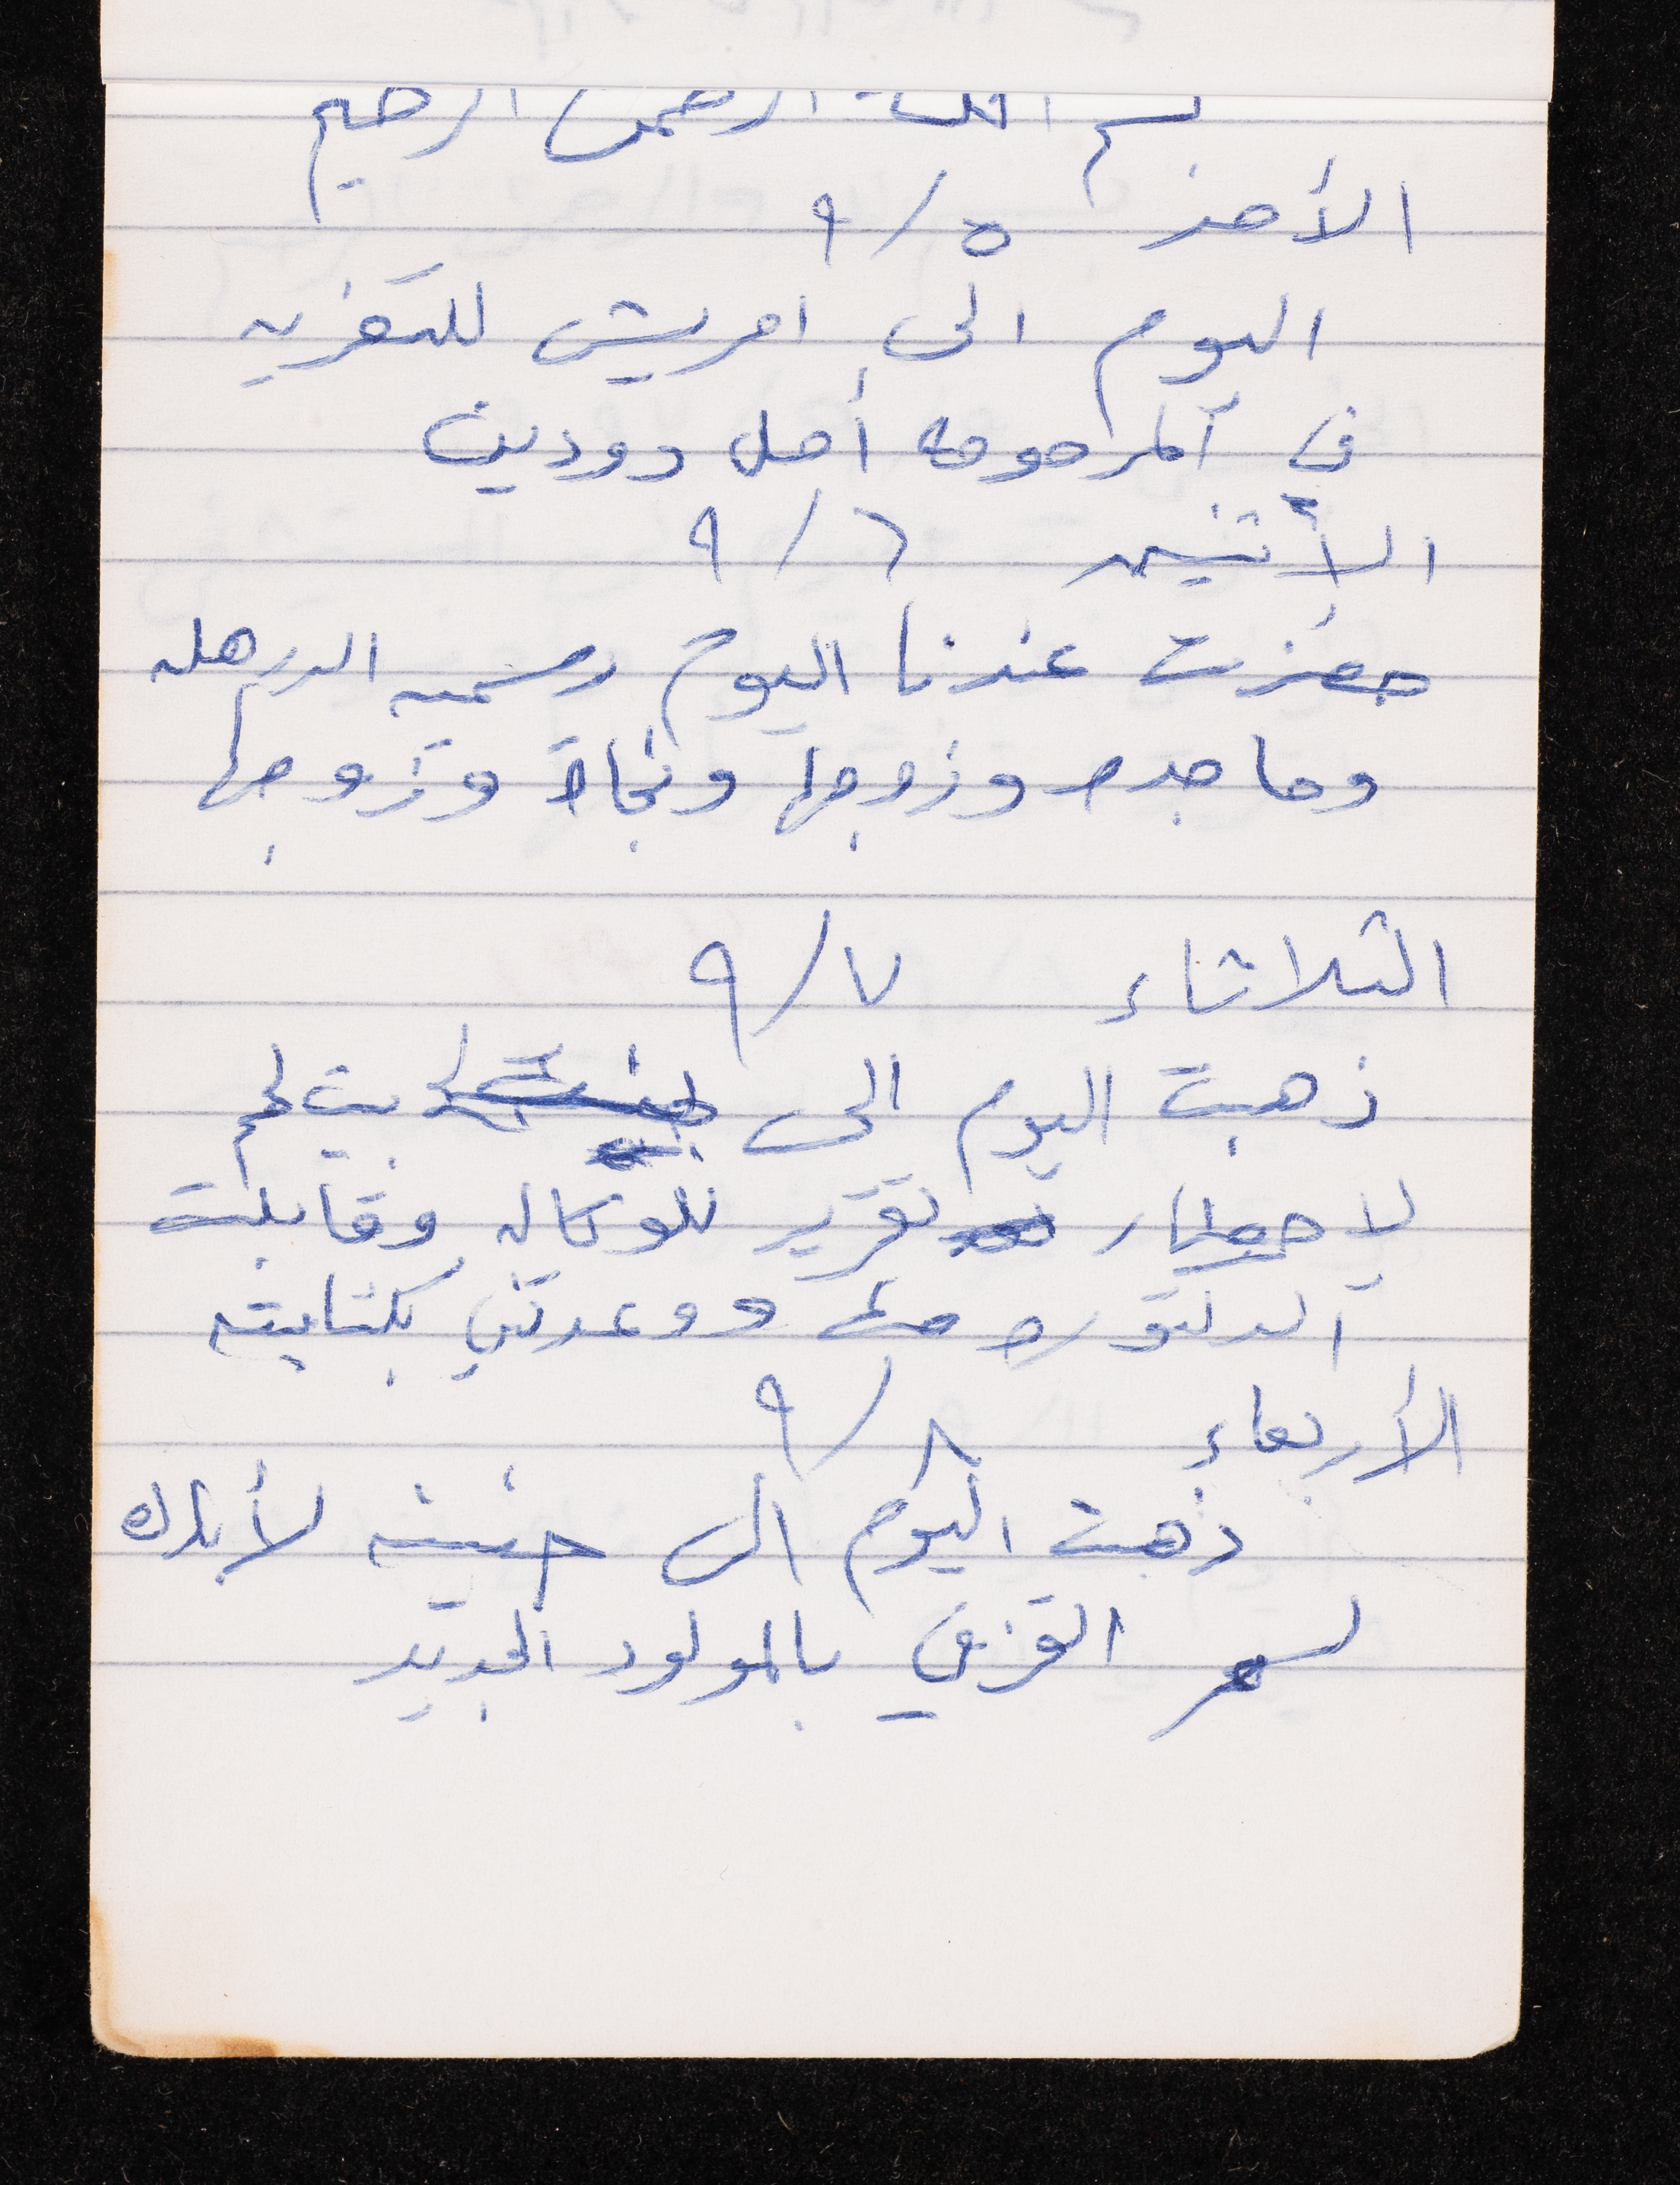 بسم الله الرحمن الرحيم
الأحد ٥/٩
اليوم الى امريش للتعزيه
في المرحومه أمل دودين
الأثنين ٦/٩
حضرت عندنا اليوم رسميه الدرهله
وماجده وزوجها ونجاة وزوجها
الثلاثاء ٧/٩
ذهبت اليوم الى بيت لحم
لاحضار تقرير للوكاله وقابلت
الدكتوره مها ووعدتني بكتابته
الأربعاء ٨/٩
ذهبت اليوم الى لأبارك
لسمر القزقي بالمولود الجديد